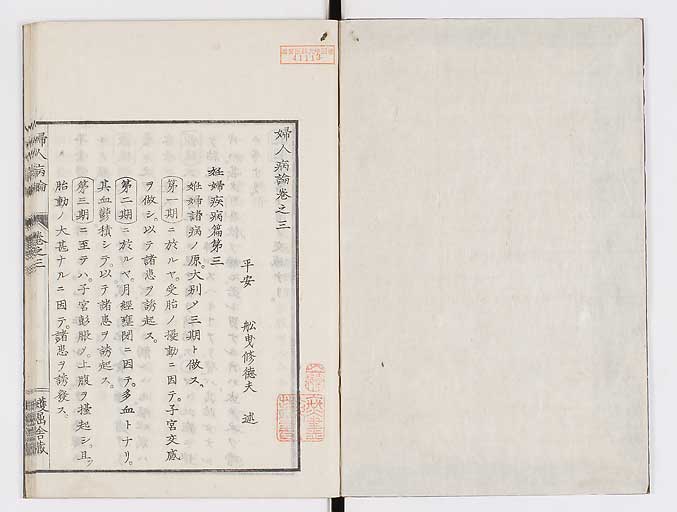 婦人病論巻之三
平安 舩曳修德夫 述
妊婦疾病篇第三
妊婦諸病ノ原。大別〆三期ト做ス。
第一期ニ於ルヤ。受胎ノ擾動ニ因テ。子宮交感
ヲ做シ。以テ諸患ヲ誘起ス。
第二期ニ於ルヤ。月經壅閉ニ因テ。多血トナリ。
其血鬱積シテ。以テ諸患ヲ誘起ス。
第三期ニ至テハ。子宮膨脹〆。上腹ヲ擡起シ。且ツ
胎動ノ太甚ナルニ因テ。諸患ヲ誘發ス。
婦人病論 巻之三
舎藏
41113